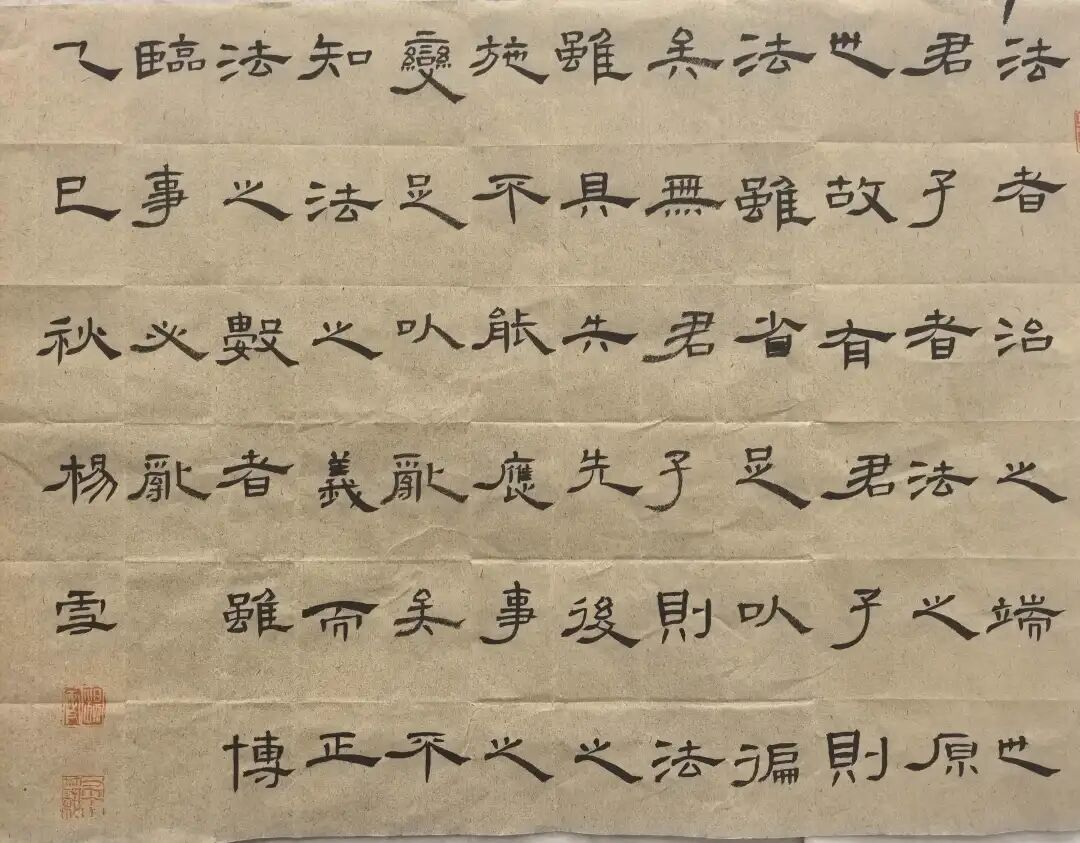 法者治之端也
君子者法之原
也故有君子則
法雖省足以徧
矣無君子則法
雖具失先後之
施不能應事之
變足以亂矣不
知法之義而正
法之數者雖博
臨事必亂
乙巳秋楊雪